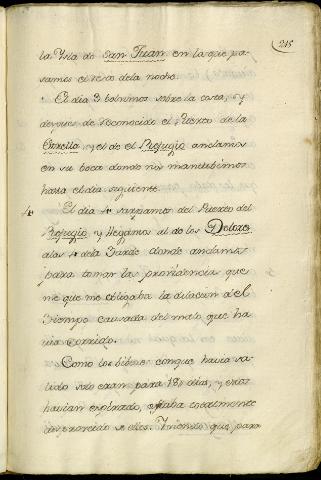 215
la Ysla de San Juan en la que pa-
samos el resto dela noche.
El dia 3 bolvimos sobre la costa, y
despues de reconocido el Puerto de la
Estrella, y el de el Refugio anclamos
en su boca donde nos mantubimos
hasta el dia siguiente.
4„ El dia 4 sarpamos del Puerto del
Refugio, y llegamos al de los Dolores
alas 4 dela Tarde donde anclamos
para tomar las providencias que
me que me obligaba la dilacion de el
Tiempo causada del malo que ha
via corrido.
Como los biberes conque havia sa-
lido solo eran para 18 dias, y estos
havian espirado, estaba totalmente
desproveido de ellos. Viendo que para